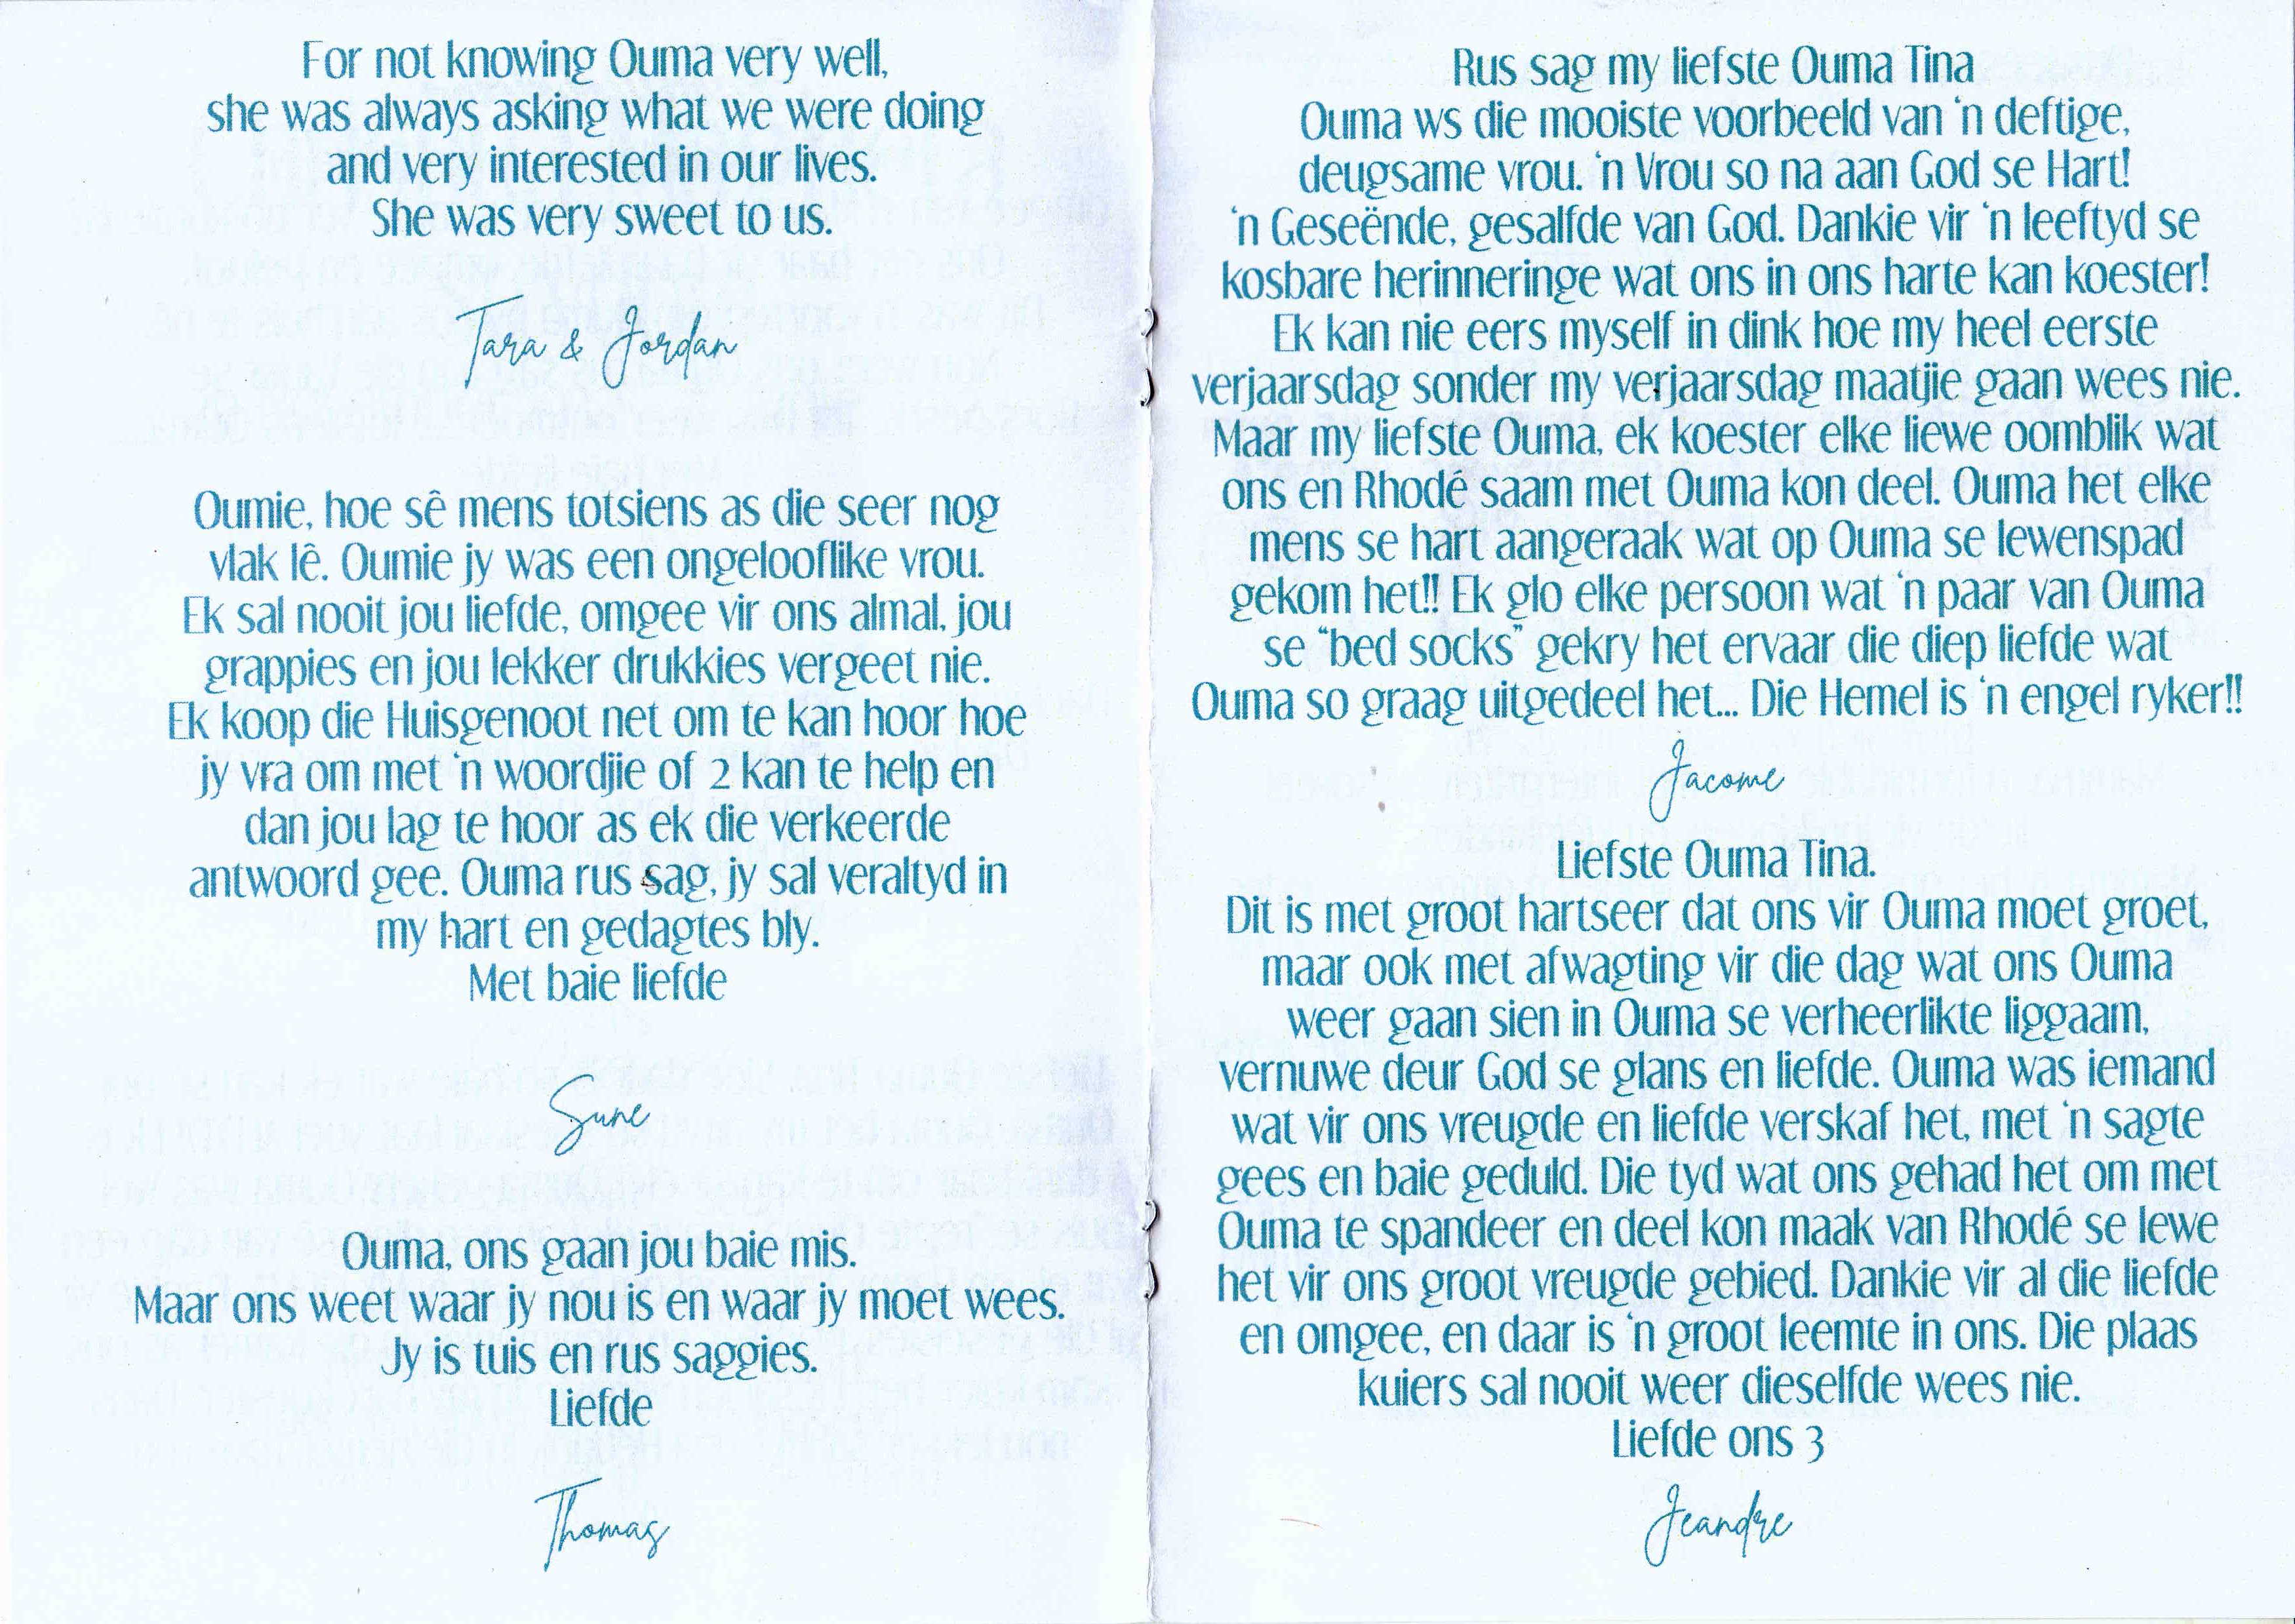 For not knowing Ouma very well,
she was always asking what we were doing
and very interested in our lives.
She was very sweet to us.
Tara & Jordan
Oumie, hoe sê mens totsiens as die seer nog
vlak lê. Oumie jy was een ongelooflike vrou.
Ek sal nooit jou liefde, omgee vir ons almal, jou
grappies en jou lekker drukkies vergeet nie.
Ek koop die Huisgenoot net om te kan hoor hoe
jy vra om met ‘n woordjie of 2 kan te help en
dan jou lag te hoor as ek die verkeerde
antwoord gee. Ouma rus sag, jy sal veraltyd in
my hart en gedagtes bly.
Met baie liefde
Sune
Ouma, ons gaan jou baie mis.
Maar ons weet waar jy nou is en waar jy moet wees.
Jy is tuis en rus saggies.
Liefde
Thomas
Rus sag my liefste Ouma Tina
Ouma ws die mooiste voorbeeld van ‘n deftige,
deugsame vrou. ‘n Vrou so na aan God se Hart!
‘n Geseënde, gesalfde van God. Dankie vir ‘n leeftyd se
kosbare herinneringe wat ons in ons harte kan koester!
Ek kan nie eers myself in dink hoe my heel eerste
verjaarsdag sonder my verjaarsdag maatjie gaan wees nie.
Maar my liefste Ouma, ek koester elke liewe oomblik wat
ons en Rhodé saam met Ouma kon deel. Ouma het elke
mens se hart aangeraak wat op Ouma se lewenspad
gekom het!! Ek glo elke persoon wat ‘n paar van Ouma
se “bed socks” gekry het ervaar die diep liefde wat
Ouma so graag uitgedeel het... Die Hemel is ‘n engel ryker!!
Jacome
Liefste Ouma Tina.
Dit is met groot hartseer dat ons vir Ouma moet groet,
maar ook met afwagting vir die dag wat ons Ouma
weer gaan sien in Ouma se verheerlikte liggaam,
vernuwe deur God se glans en liefde. Ouma was iemand
wat vir ons vreugde en liefde verskaf het, met ‘n sagte
gees en baie geduld. Die tyd wat ons gehad het om met
Ouma te spandeer en deel kon maak van Rhodé se lewe
het vir ons groot vreugde gebied. Dankie vir al die liefde
en omgee, en daar is ‘n groot leemte in ons. Die plaas
kuiers sal nooit weer dieselfde wees nie.
Liefde ons 3
Jeandre